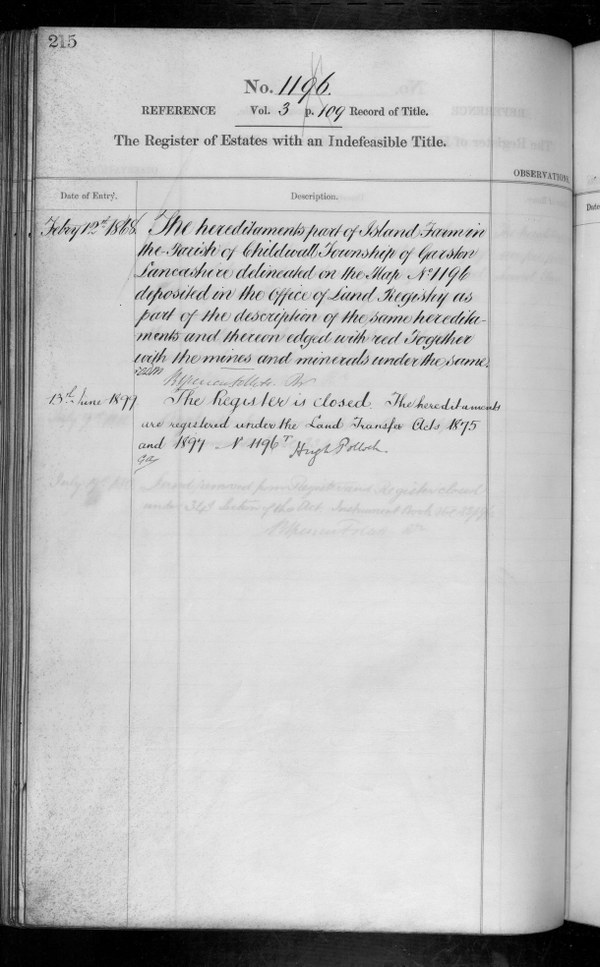 215
No. 1196.
REFERENCE Vol. 3 p. 109 Record of Title.
The Register of Estates with an Indefeasible Title.
OBSERVATIONS
Date of Entry.
Description.
Date
Febry 12th 1868
The hereditaments part of Island Farm in
the Parish of Childwall Township of Garston
Lancashire delineated on the Map No 1196
deposited in the Office of Land Registry as
part of the description of the same heredita-
ments and thereon edged with red Together
with the mines and minerals under the same.
13th June 1899
The Register is closed. The hereditaments
are registered under the Land Transfer Acts 1875
and 1897 No 1196T
Hugh Pollock.